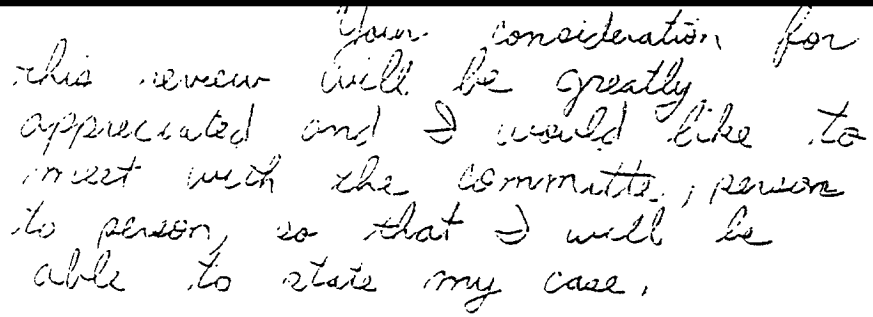 Your consideration for
this review will be greatly
appreciated and I would like to
meet with the committe, person
to person, so that I will be
able to state my case.